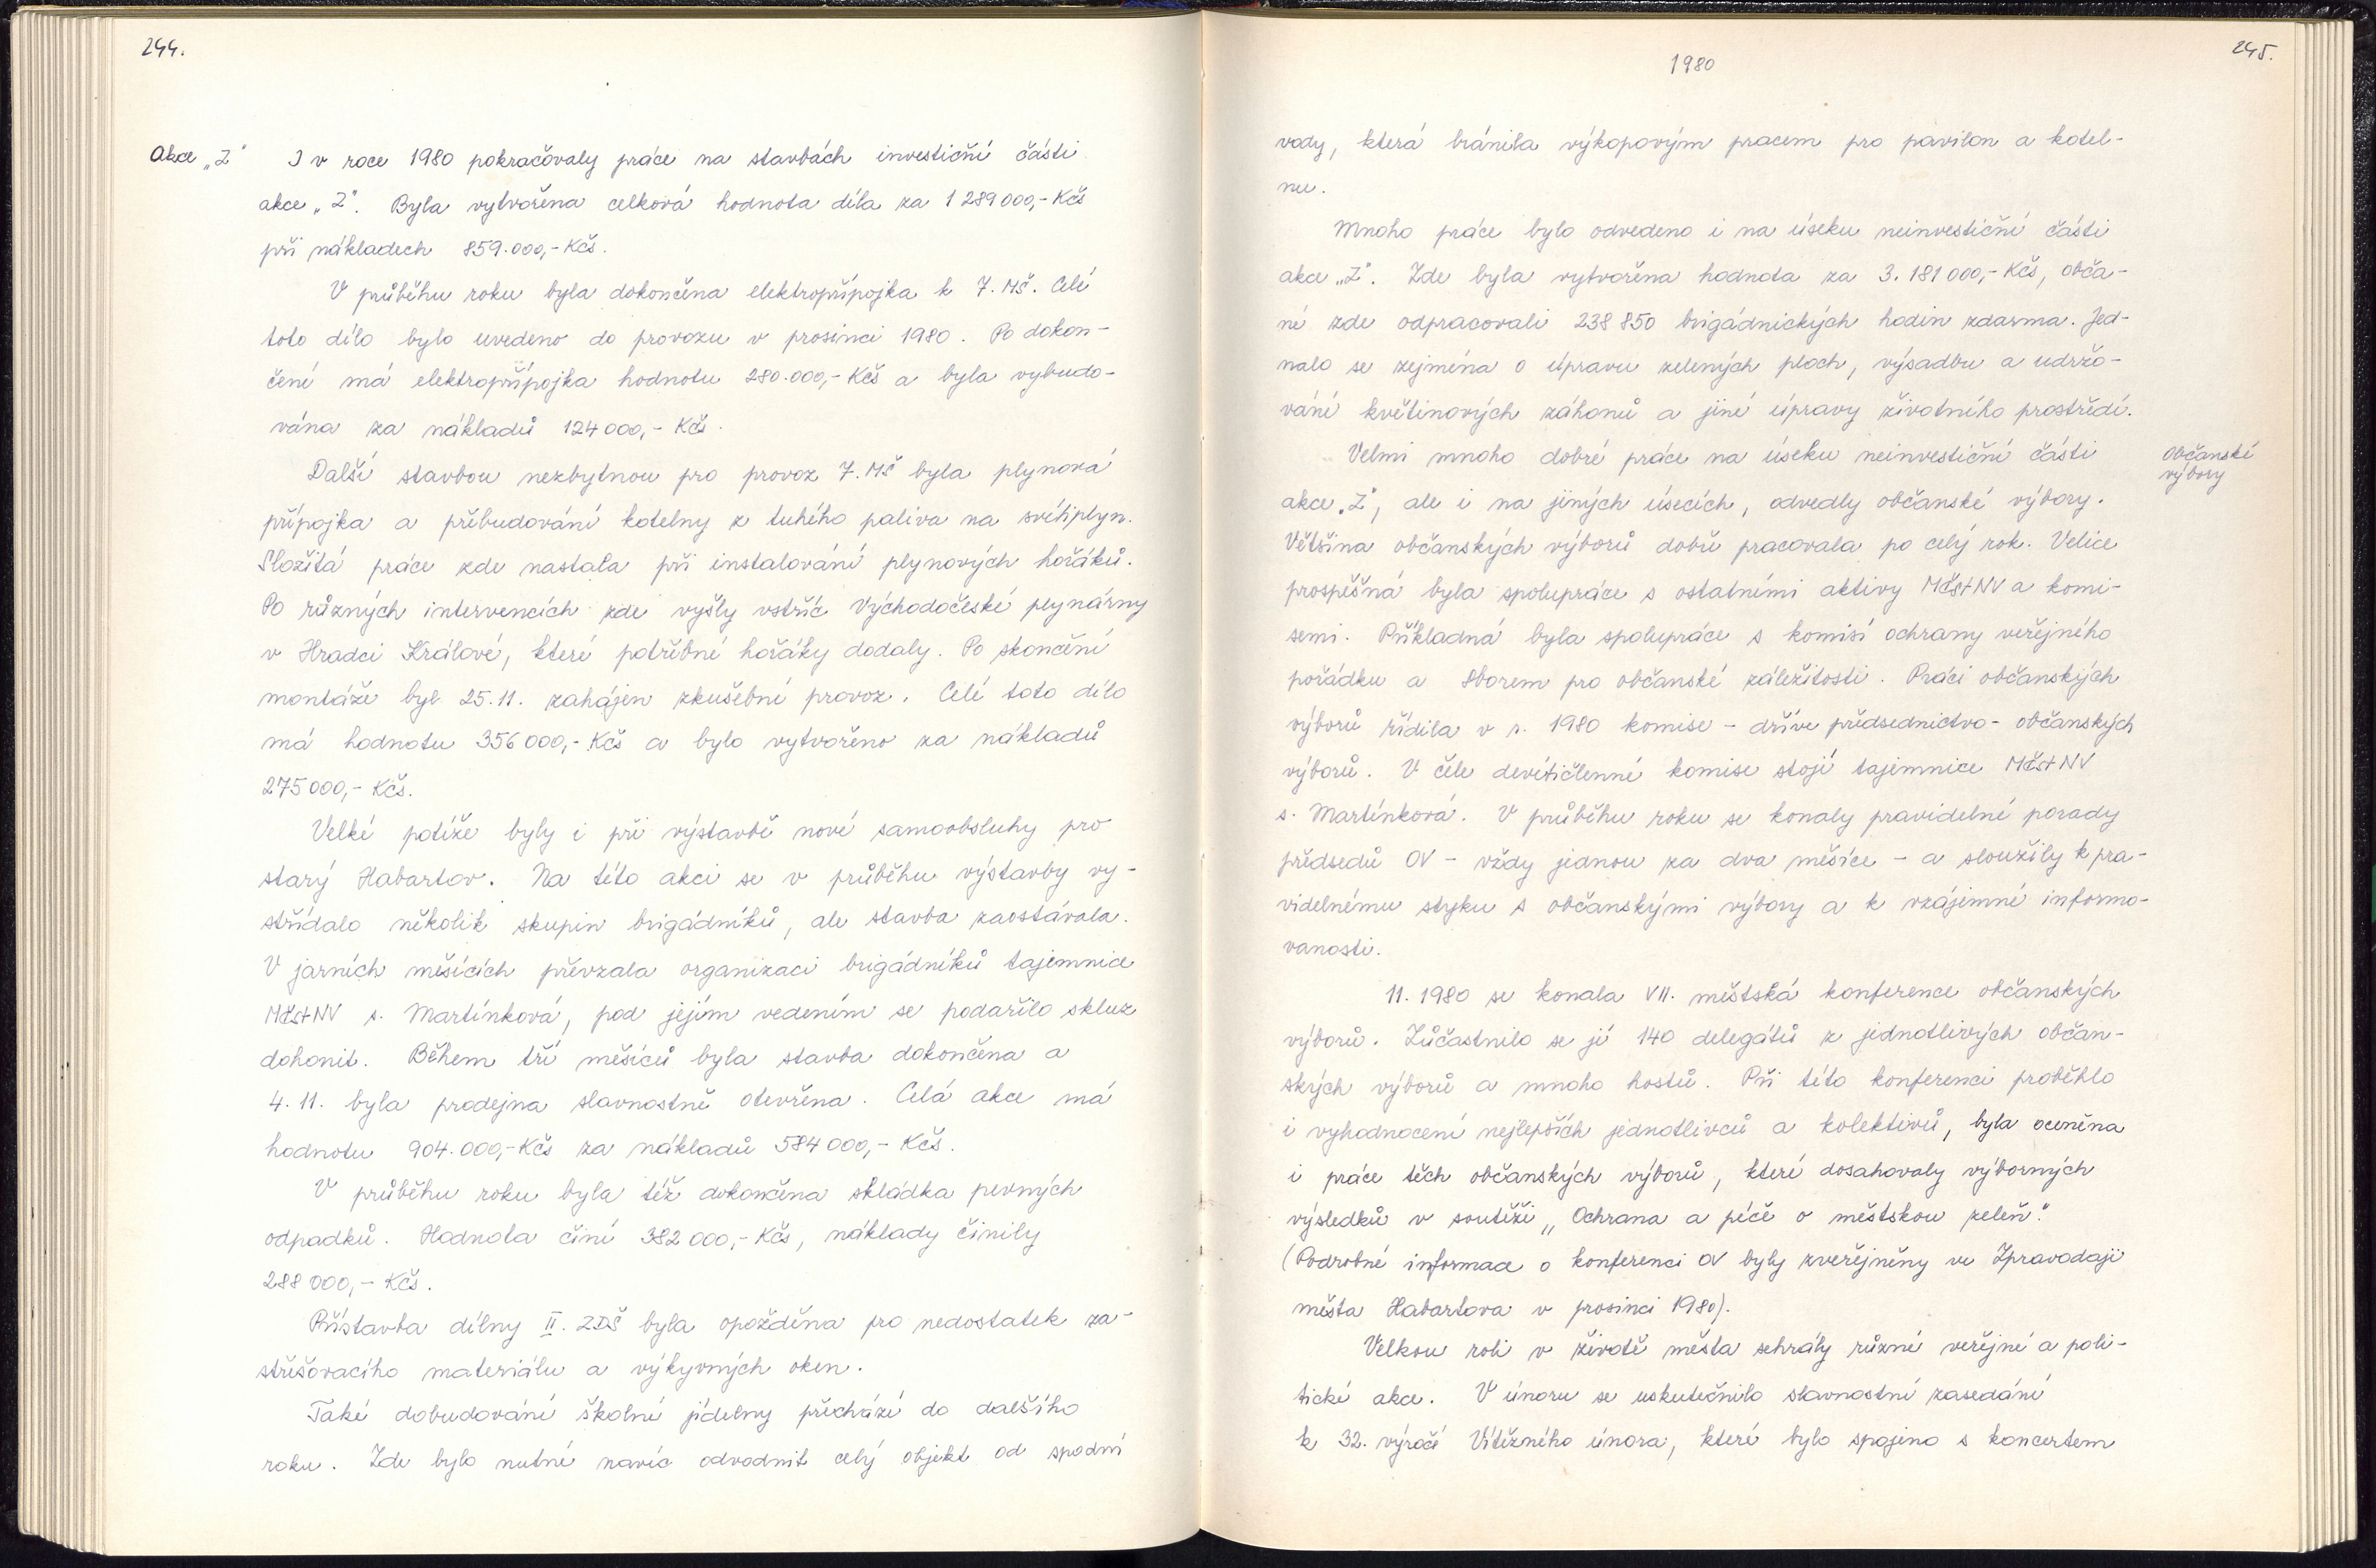 244.
Akce „Z"
I v roce 1980 pokračovaly práce na stavbách investiční části
akce „Z". Byla vytvořena celková hodnota díla za 1 289 000,- Kčs
při nákladech 859.000,- Kčs.
V průběhu roku byla dokončena elektropřípojka k 7. MŠ. Celé
toto dílo bylo uvedeno do provozu v prosinci 1980. Po dokon-
čení má elektropřípojka hodnotu 280.000,- Kčs a byla vybudo-
vána za nákladů 124 000,- Kčs.
Další stavbou nezbytnou pro provoz 7. MŠ byla plynová
přípojka a přebudování kotelny z tuhého paliva na svítiplyn.
Složitá práce zde nastala při instalování plynových hořáků.
Po různých intervencích zde vyšly vstříc Východočeské plynárny
v Hradci Králové, které potřebné hořáky dodaly. Po skončení
montáže byl 25.11. zahájen zkušební provoz. Celé toto dílo
má hodnotu 356 000,- Kčs a bylo vytvořeno za nákladů
275 000,- Kčs.
Velké potíže byly i při výstavbě nové samoobsluhy pro
starý Habartov. Na této akci se v průběhu výstavby vy-
střídalo několik skupin brigádníků, ale stavba zaostávala.
V jarních měsících převzala organizaci brigádníků tajemnice
MěstNV s. Martínková, pod jejím vedením se podařilo skluz
dohonit. Během tří měsíců byla stavba dokončena a
4. 11. byla prodejna slavnostně otevřena. Celá akce má
hodnotu 904.000,- Kčs za nákladů 584 000,- Kčs.
V průběhu roku byla též dokončena skládka pevných
odpadků. Hodnota činí 382 000,- Kčs, náklady činily
288 000,- Kčs.
Přístavba dílny II. ZDŠ byla opožděna pro nedostatek za-
střešovacího materiálu a výkyvných oken.
Také dobudování školní jídelny přechází do dalšího
roku. Zde bylo nutné navíc odvodnit celý objekt od spodní
1980
245.
vody, která bránila výkopovým pracem pro pavilon a kotel-
nu.
Mnoho práce bylo odvedeno i na úseku neinvestiční části
akce „Z". Zde byla vytvořena hodnota za 3. 181 000,- Kčs, obča-
né zde odpracovali 238 850 brigádnických hodin zdarma. Jed-
nalo se zejména o úpravu zelených ploch, výsadbu a udržo-
vání květinových záhonů a jiné úpravy životního prostředí.
Velmi mnoho dobré práce na úseku neinvestiční části
Občanské
výbory
akce „Z", ale i na jiných úsecích, odvedly občanské výbory.
Většina občanských výborů dobře pracovala po celý rok. Velice
prospěšná byla spolupráce s ostatními aktivy MěstNV a komi-
semi. Příkladná byla spolupráce s komisí ochrany veřejného
pořádku a Sborem pro občanské záležitosti. Práci občanských
výborů řídila v r. 1980 komise - dříve předsednictvo - občanských
výborů. V čele devítičlenné komise stojí tajemnice MěstNV
s. Martínková. V průběhu roku se konaly pravidelné porady
předsedů OV - vždy jednou za dva měsíce - a sloužily k pra-
videlnému styku s občanskými výbory a k vzájemné informo-
vanosti.
11. 1980 se konala VII. městská konference občanských
výborů. Zúčastnilo se jí 140 delegátů z jednotlivých občan-
ských výborů a mnoho hostů. Při této konferenci proběhlo
i vyhodnocení nejlepších jednotlivců a kolektivů, byla oceněna
i práce těch občanských výborů, které dosahovaly výborných
výsledků v soutěži „Ochrana a péče o městskou zeleň."
(Podrobné informace o konferenci OV byly zveřejněny ve Zpravodaji
města Habartova v prosinci 1980).
Velkou roli v životě města sehrály různé veřejné a poli-
tické akce. V únoru se uskutečnilo slavnostní zasedání
k 32. výročí Vítězného února, které bylo spojeno s koncertem